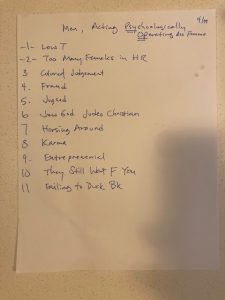 Men, Acting Psychologically
Operating As Femme
-1- Low T
-2- Too Many Females in HR
3 Colored Judgement
4. Fraud
5.
6 God Judeo Christian
7 Horsing Around
8 Karma
9. Entrepreneurial
10 They Still Want F You
11 Failing to Duck Bk